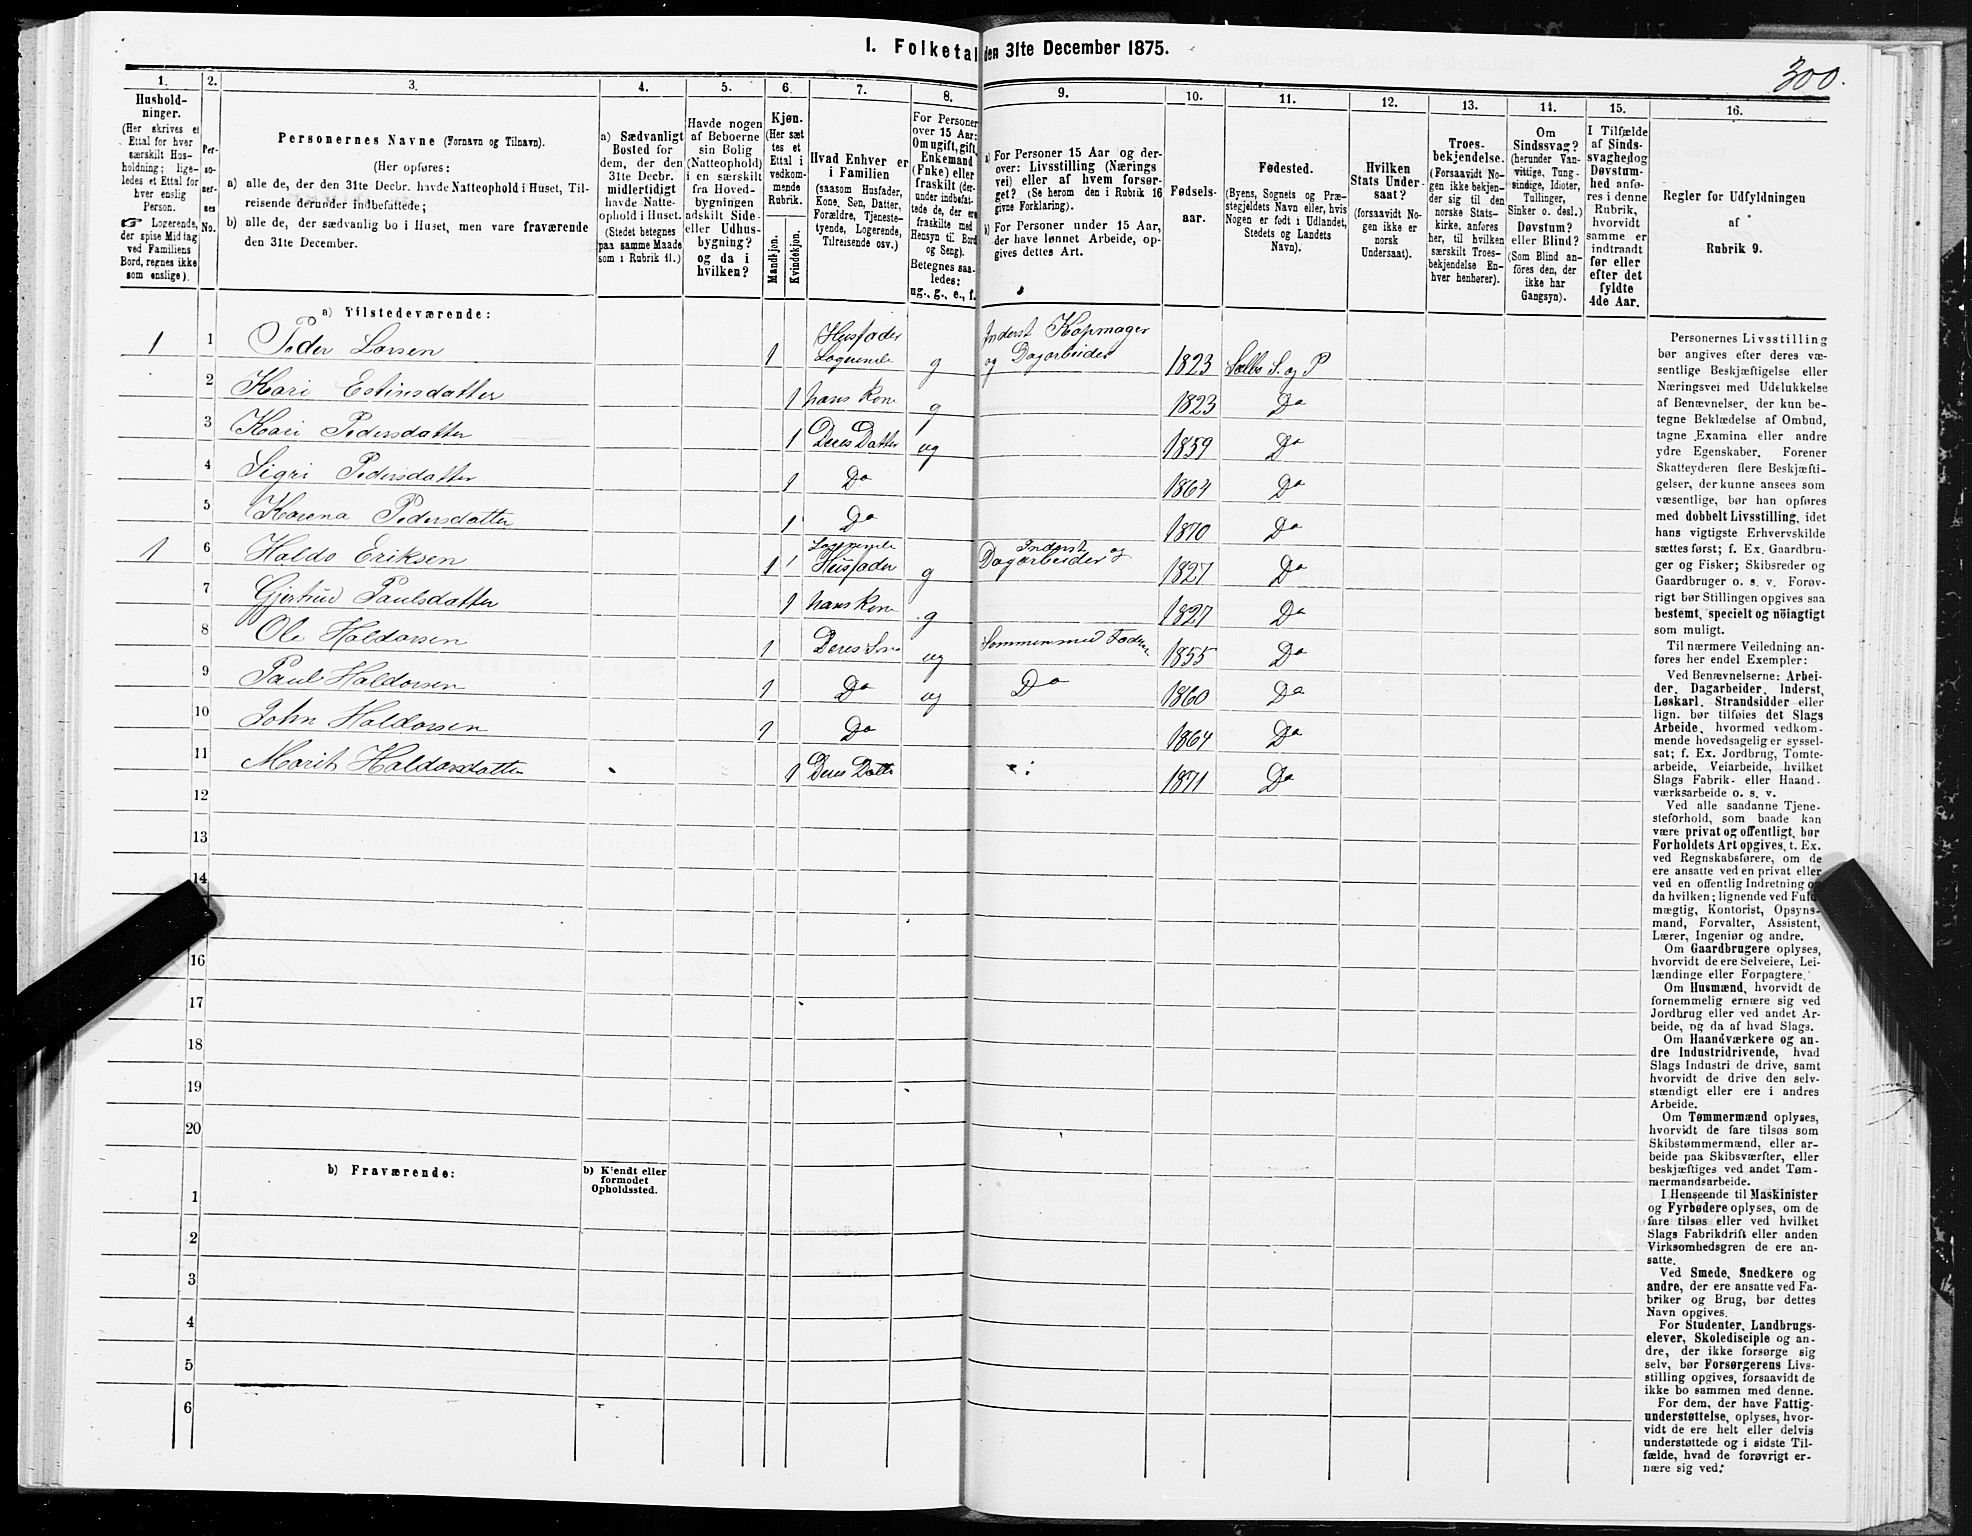 I. Folketal den 31te December 1875.
300.
1.
2.
3.
4.
5.
6
7.
8.
9.
10.
11.
12.
13.
14.
15.
16.
Hushold-
ninger.
(Her skrives et
Ettal for hver
særskilt Hus-
holdning; lige-
ledes et Ettal for
hver enslig
Person.
☞ Logerende,
der spise Middag
ved Familiens
Bord, regnes ikke
som enslige).
Per-
so-
ner-
nes
No.
Personernes Navne (Fornavn og Tilnavn).
(Her opføres:
a) alle de, der den 31te Decbr. havde Natteophold i Huset, Til-
reisende derunder indbefattede;
b) alle de, der sædvanlig bo i Huset, men vare fraværende
den 31te December.
a) Sædvanligt
Bosted for
dem, der den
31te Decbr.
midlertidigt
havde Natte-
ophold i Huset.
(Stedet betegnes
paa samme Maade
som i Rubrik 11.)
Havde nogen
af Beboerne
sin Bolig
(Natteophold)
i en særskilt
fra Hoved-
bygningen
adskilt Side-
eller Udhus-
bygning?
og da i
hvilken?
Kjøn.
(Her sæt
tes et
Ettal i
vedkom-
mende
Rubrik.
Mandkjøn.
Kvindekjøn.
Hvad Enhver er
i Familien
(saasom Husfader,
Kone, Søn, Datter,
Forældre, Tjeneste-
tyende, Logerende,
Tilreisende osv.)
For Personer
over 15 Aar:
Om ugift, gift,
Enkemand
(Enke) eller
fraskilt (der-
under indbefat-
tede de, der ere
fraskilte med
Hensyn til Bord
og Seng).
Betegnes saa-
ledes:
ug., g., e., f.
a) For Personer 15 Aar og der-
over: Livsstilling (Nærings
vei) eller af hvem forsør-
get? (Se herom den i Rubrik 16
givne Forklaring).
b) For Personer under 15 Aar,
der have lønnet Arbeide, op-
gives dettes Art.
Fødsels-
aar.
Fødested.
(Byens, Sognets og Præ-
stegjeldets Navn eller, hvis
Nogen er født i Udlandet,
Stedets og Landets
Navn).
Hvilken
Stats Under-
saat?
(forsaavidt No-
gen ikke er
norsk
Undersaat).
Troes-
bekjendelse.
(Forsaavidt No-
gen ikke bekjen-
der sig til den
norske Stats-
kirke, anføres
her, til hvilken
særskilt Troes-
bekjendelse En-
hver henhører).
Om
Sindssvag?
(herunder Van-
vittige, Tung-
sindige, Idioter,
Tullinger,
Sinker o. desl.)
Døvstum?
eller Blind?
(Som Blind an-
føres den, der
ikke har
Gangsyn).
I Tilfælde
af Sinds-
svaghed og
Døvstum-
hed anfø-
res i denne
Rubrik,
hvorvidt
samme er
indtraadt
før eller
efter det
fyldte
4de Aar.
Regler for Udfyldningen
af
Rubrik 9.
a) Tilstedeværende:
1 1 Peder Larsen 1 Husfader Logerende g Inderst Kopmager og Dagarbeider 1823 Sælbo S. og P
2 Kari Estinsdatter 1 hans Kone g 1823 Do
3 Kari Pedersdatter 1 Deres Datter ug 1859 Do
4 Sigri Pedersdatter 1 Do 1864 Do
5 Karena Pedersdatter 1 Do 1870 Do
1 6 Haldo Eriksen 1 1 Logerende Husfader g Inderst og Dagarbeider 1827 Do
7 Gjertrud Paulsdatter 1 hans Kone g 1827 Do
8 Ole Haldorsen 1 Deres Søn ug Sammen med Faderen 1855 Do
9 Paul Haldorsen 1 Do ug Do 1860 Do
10 John Haldorsen 1 Do 1864 Do
11 Marit Haldorsdatter 1 Deres Datter 1871 Do
12
13
14
16
17
18
19
20
b) Fraværende:
b) Kjendt eller
formodet
Opholdssted.
1
2
3
4
5
6
Personernes Livsstilling
bør angives efter deres væ-
sentlige Beskjæftigelse eller
Næringsvei med Udelukkelse
af Benævnelser, der kun be-
tegne Beklædelse af Ombud,
tagne Examina eller andre
ydre Egenskaber. Forener
Skatteyderen flere Beskjæfti-
gelser, der kunne ansees som
væsentlige, bør han opføres
med dobbelt Livsstilling, idet
hans vigtigste Erhvervskilde
sættes først; f. Ex. Gaardbru-
ger og Fisker; Skibsreder og
Gaardbruger o. s. v. Forøv-
rigt bør Stillingen opgives saa
bestemt, specielt og nöiagtigt
som muligt.
Til nærmere Veiledning an-
føres her endel Exempler:
Ved Benævnelserne: Arbei-
der, Dagarbeider, Inderst,
Løskarl, Strandsidder eller
lign. bør tilføies det Slags
Arbeide, hvormed vedkom-
mende hovedsagelig er syssel-
sat; f. Ex. Jordbrug, Tomte-
arbeide, Veiarbeide, hvilket
Slags Fabrik- eller Haand-
værksarbeide o. s. v.
Ved alle saadanne Tjene-
steforhold, som baade kan
være privat og offentligt, bør
Forholdets Art opgives, t. Ex.
ved Regnskabsførere, om de
ere ansatte ved en privat eller
ved en offentlig Indretning og
da hvilken; lignende ved Fuld-
mægtig, Kontorist, Opsyns-
mand, Forvalter, Assistent,
Lærer, Ingeniør og andre.
Om Gaardbrugere oplyses,
hvorvidt de ere Selveiere, Lei-
lændinge eller Forpagtere.
Om Husmænd, hvorvidt de
fornemmelig ernære sig ved
Jordbrug eller ved andet Ar-
beide, og da af hvad Slags.
Om Haandværkere og an-
dre Industridrivende, hvad
Slags Industri de drive, samt
hvorvidt de drive den selv-
stændigt eller ere i andres
Arbeide.
Om Tømmermænd oplyses,
hvorvidt de fare tilsøs som
Skibstømmermænd, eller ar-
beide paa Skibsværfter, eller
beskjæftiges ved andet Tøm-
mermandsarbeide.
I Henseende til Maskinister
og Fyrbødere oplyses, om de
fare tilsøs eller ved hvilket
Slags Fabrikdrift eller anden
Virksomhedsgren de ere an-
satte.
Ved Smede, Snedkere og
andre, der ere ansatte ved Fa-
briker og Brug, bør dettes
Navn opgives.
For Studenter, Landbrugs-
elever, Skoledisciple og an-
dre, der ikke forsørge sig
selv, bør Forsørgerens Livs-
stilling opgives, forsaavidt de
ikke bo sammen med denne.
For dem, der have Fattig-
understøttelse, oplyses, hvor-
vidt de ere helt eller delvis
understøttede og i sidste Til-
fælde, hvad de forøvrigt er-
nære sig ved.